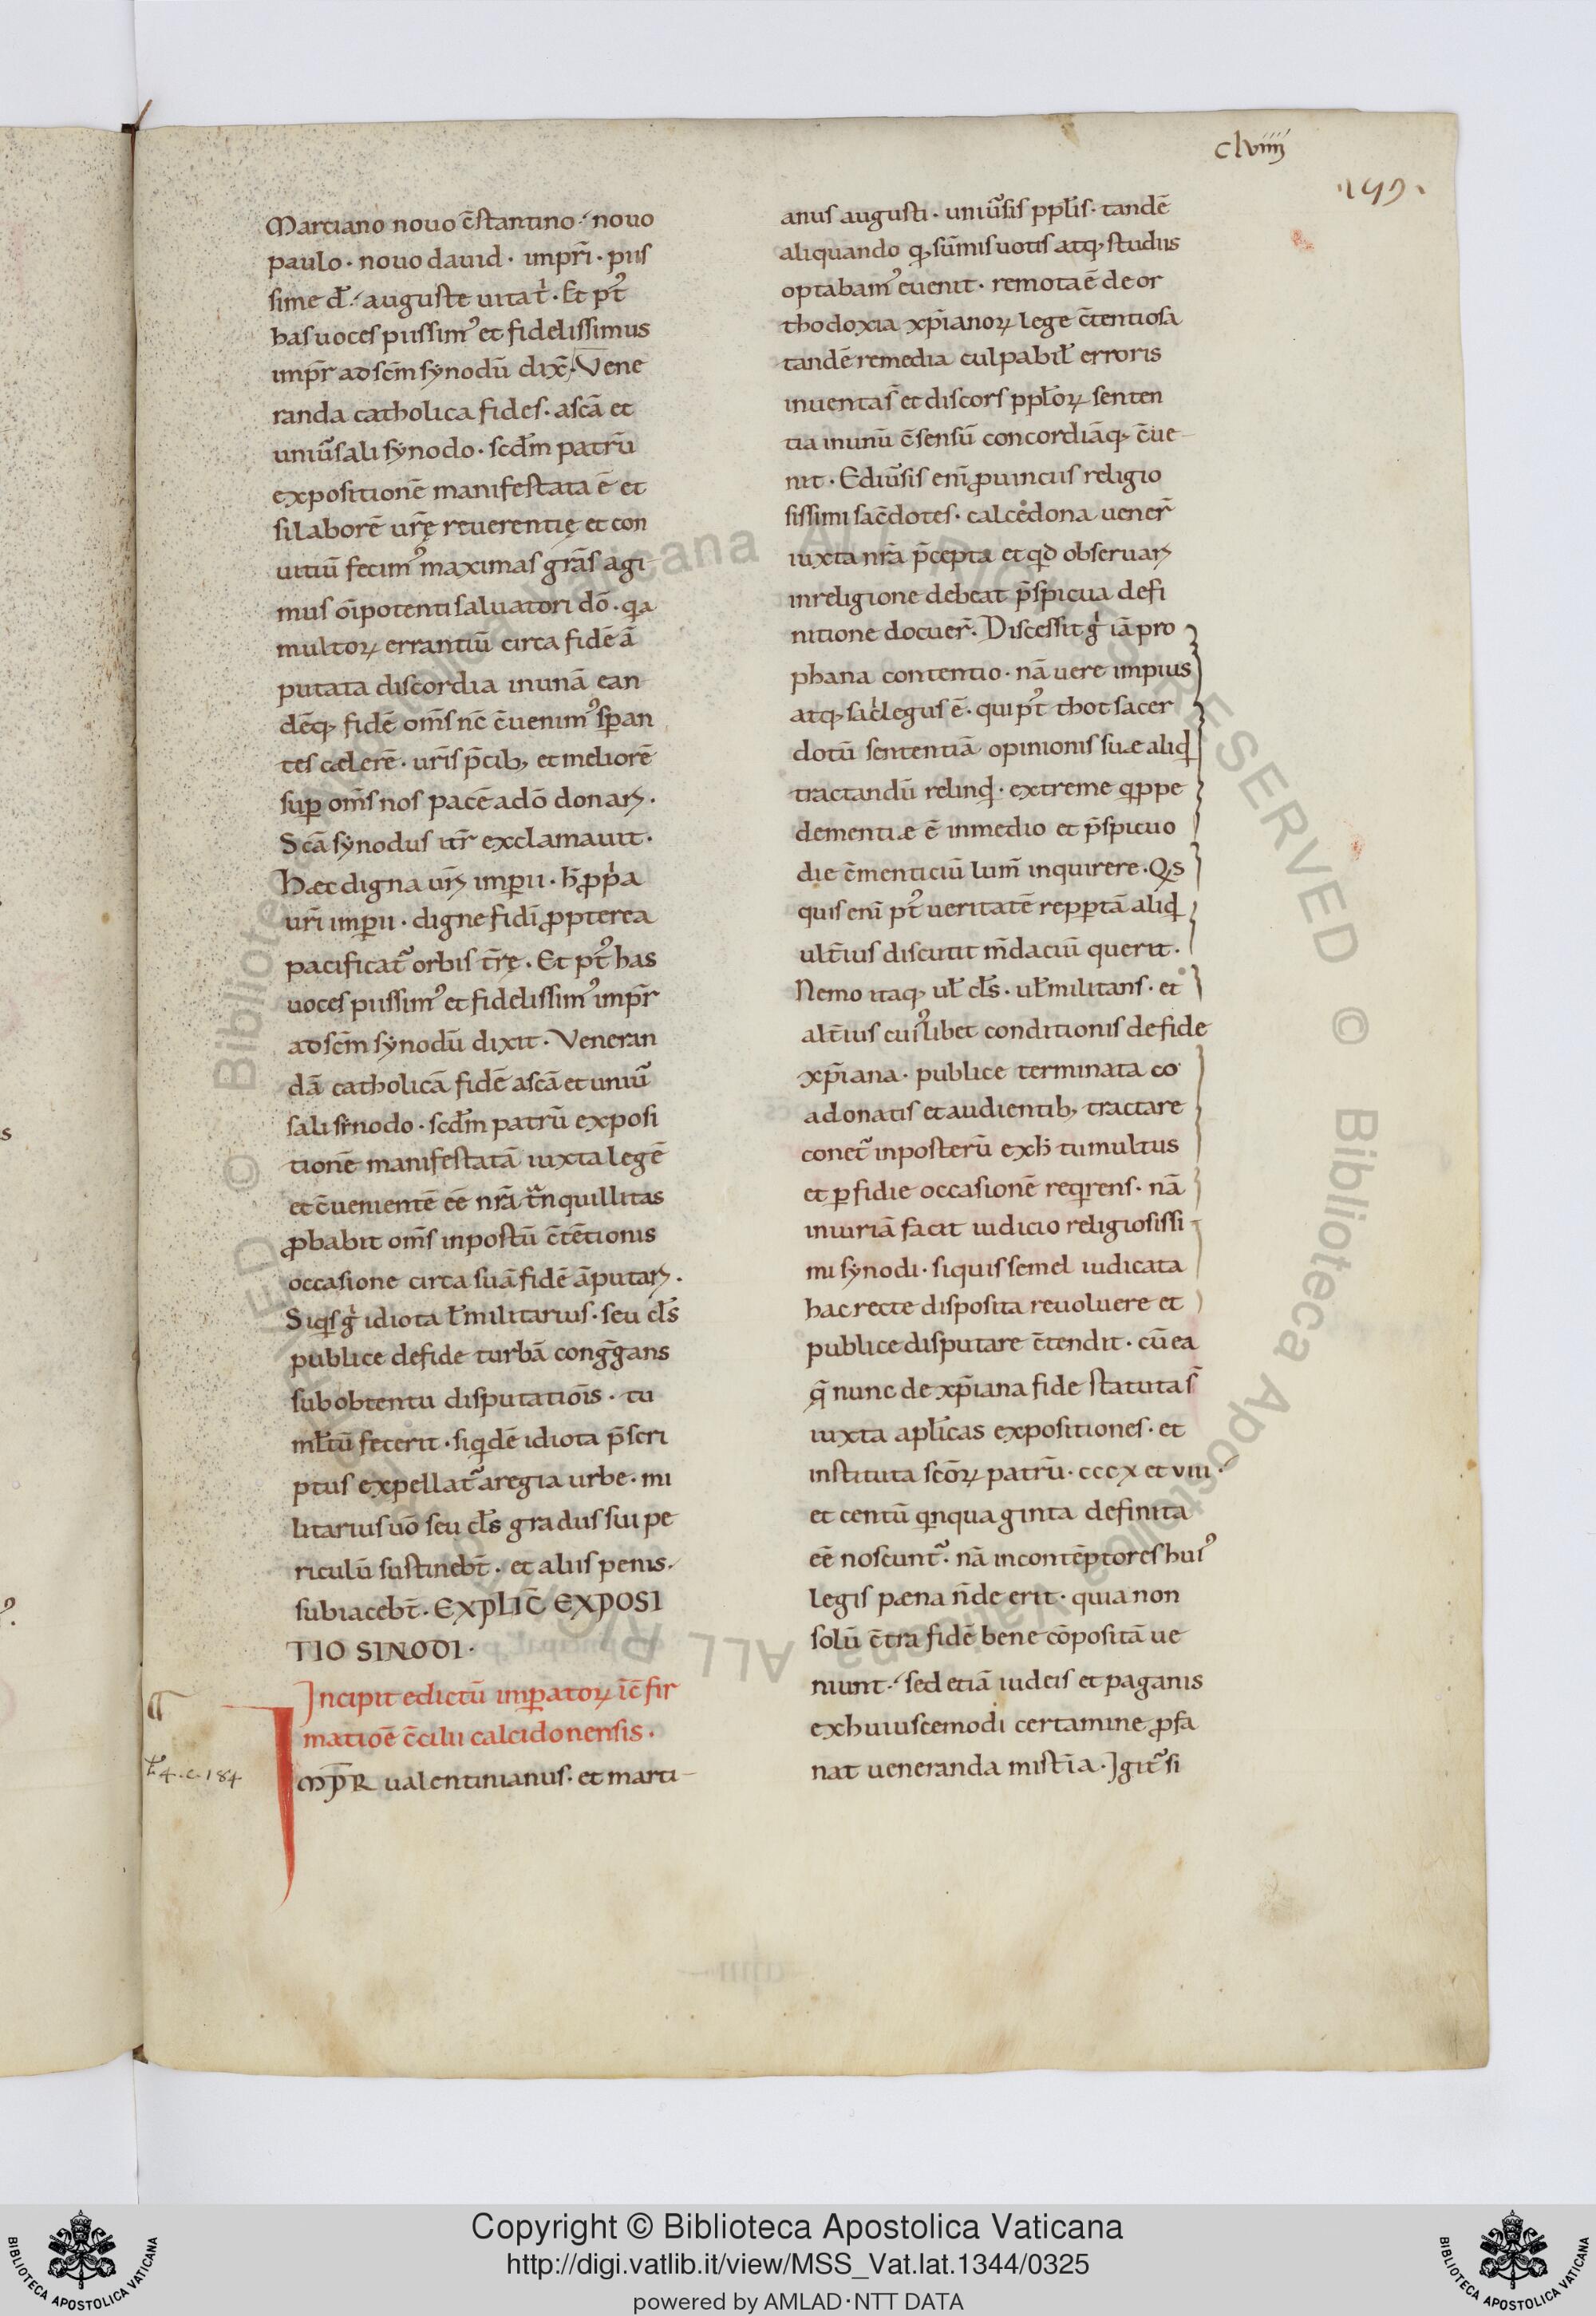 clviiii
.159.
Marciano nouo c̄stantino. nouo
paulo · nouo dauid · impr̄i · piis
sime dꝉ. auguste uita t᷒ · Et pt᷒
has uoces piissim᷒ et fidelissimus
imp̄r ad sc̄m synodū dix̄. Vene
randa catholica fides · a sc̄a et
uniūsali synodo · scd̄m patrū
expositionē manifestata ē et
si laborē ur̄ę reuerentię et con
uitiū fecim᷒ maximas gr̄as agi
mus oīpotenti saluatori dō · qa
multoꝝ errantiū circa fidē ā
putata discordia in unā ean
dēq; fidē om̄s nc̄ c̄uenim᷒ sꝑan
tes cęlerē · ur̄is p̄cib; et meliorē
suꝑ om̄s nos pacē a dō donari ·
Sc̄a synodus itr̄ exclamauit ·
Hæc digna ur̄i imꝑii · h̄ ꝓp̄a
ur̄i imꝑii · digne fidī ꝓpterea
pacificat᷒ orbis tr̄ę · Et pt᷒ has
uoces piissim᷒ et fidelissim᷒ imp̄r
ad sc̄m synodū dixit · Veneran
dā catholicā fidē a sc̄a et uniū
sali sinodo · scd̄m patrū exposi
tionē manifestatā iuxta legē
et c̄uenientē eē nr̄a tr̄nquillitas
ꝓbabit om̄s in postū c̄tētionis
occasione circa suā fidē āputari ·
Siqs g᷒ idiota ꝉ militarius · seu cl̄s
publice de fide turbā congḡans
sub obtentu disputatiōis · tu
ml̄tū fecerit · siqidē idiota p̄scri
ptus expellat᷒ a regia urbe · mi
litarius uō seu cl̄s gradus sui pe
riculū sustinebt̄ · et aliis penis
subiacebt̄ · EXPLIC̄ EXPOSI
TIO SINODI ·
Incipit edictū imꝑatoꝝ ic̄ fir
matiōē c̄cilii calcidonensis ·
IMP̄R ualentinianus · et marci
t. 4. c. 184
anus augusti · uniūsis ppl̄is · tandē
aliquando q; sūmis uotis atq; studiis
optabam᷒ euenit · remota ē de or
thodoxia xp̄ianoꝝ lege c̄tentiosa
tandē remedia culpabilꝉ erroris
inuentas̄ et discors pplōꝝ senten
tia in unū c̄sensū concordiāq; c̄ue
nit · E diūsis enī ꝓuinciis religio
sissimi sac̄dotes · calcedona uener̄
iuxta nr̄a p̄cepta et qd obseruari
in religione debeat p̄spicua defi
nitione docuer̄ · Discessit g᷒ iā pro
phana contentio · nā uere impius
atq; sac̄legus ē · qui pt᷒ thot sacer
dotū sententiā opinionis suæ aliqd
tractandū relinqd · extreme qppe
dementiæ ē in medio et p̄spicuo
die c̄menticiū lum̄ inquirere · Qs
quis enī pt᷒ ueritatē repꝑtā aliqd
ult̄ius discutit m̄daciū querit ·
Nemo itaq; uꝉ cl̄s · uꝉ militans · et
alt̄ius cui᷒libet conditionis de fide
xp̄iana · publice terminata co
adonatis et audientib; tractare
conet᷒ in posterū ex h̄ tumultus
et ꝑfidie occasionē reqrens · nā
iniuriā facit iudicio religiosissi
mi synodi · si quis semel iudicata
hac recte disposita reuoluere et
publice disputare c̄tendit · cū ea
q̄ nunc de xp̄iana fide statuta s̄
iuxta apl̄icas expositiones · et
instituta scōꝝ patrū · cccx et viii ·
et centū qnquaginta definita
eē noscunt᷒ · nā in contēptores hui᷒
legis pæna n̄ de erit · quia non
solū c̄tra fidē bene cōpositā ue
niunt · sed etiā iudeis et paganis
ex huiuscemodi certamine ꝓfa
nat ueneranda mist̄ia · Igit᷒ si
Copyright © Biblioteca Apostolica Vaticana
http://digi.vatlib.it/view/MSS_Vat.lat.1344/0325
powered by AMLAD·NTT DATA